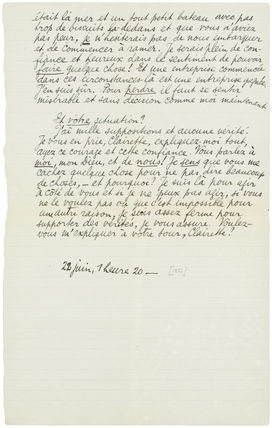 était la mer et un tout petit bateau avec pas
trop de biscuits là-dedans et que vous n'aviez
pas peur, je n'hésiterais pas de nous embarquer
et de commencer à ramer. Je serais plein de con-
fiance et heureux dans le sentiment de pouvoir
faire quelque chose! Et une entreprise commencée
dans ces circonstances-là est une entreprise
J'en suis sûr. Pour perdre il faut se sentir
misérable et sans décision comme moi maintenant.
Et votre situation?
J'ai mille suppositions et aucune vérité.
Je vous en prie, Clairette, expliquez-moi tout,
ayez ce courage et cette confiance. Vous parlez à
moi, mon Dieu, et de nous! Je sens que vous me
cachez quelque chose pour ne pas dire beaucoup
de choses, — et pourquoi? Je suis là pour agir
à côté de vous et si je ne peux pas agir, si vous
ne le voulez pas ou que c'est impossible pour
une autre raison, je suis assez ferme pour
supporter des vérités, je vous assure. Voulez-
vous m'expliquer à votre tour, Clairette?
22 juin, 1 heure 20 —